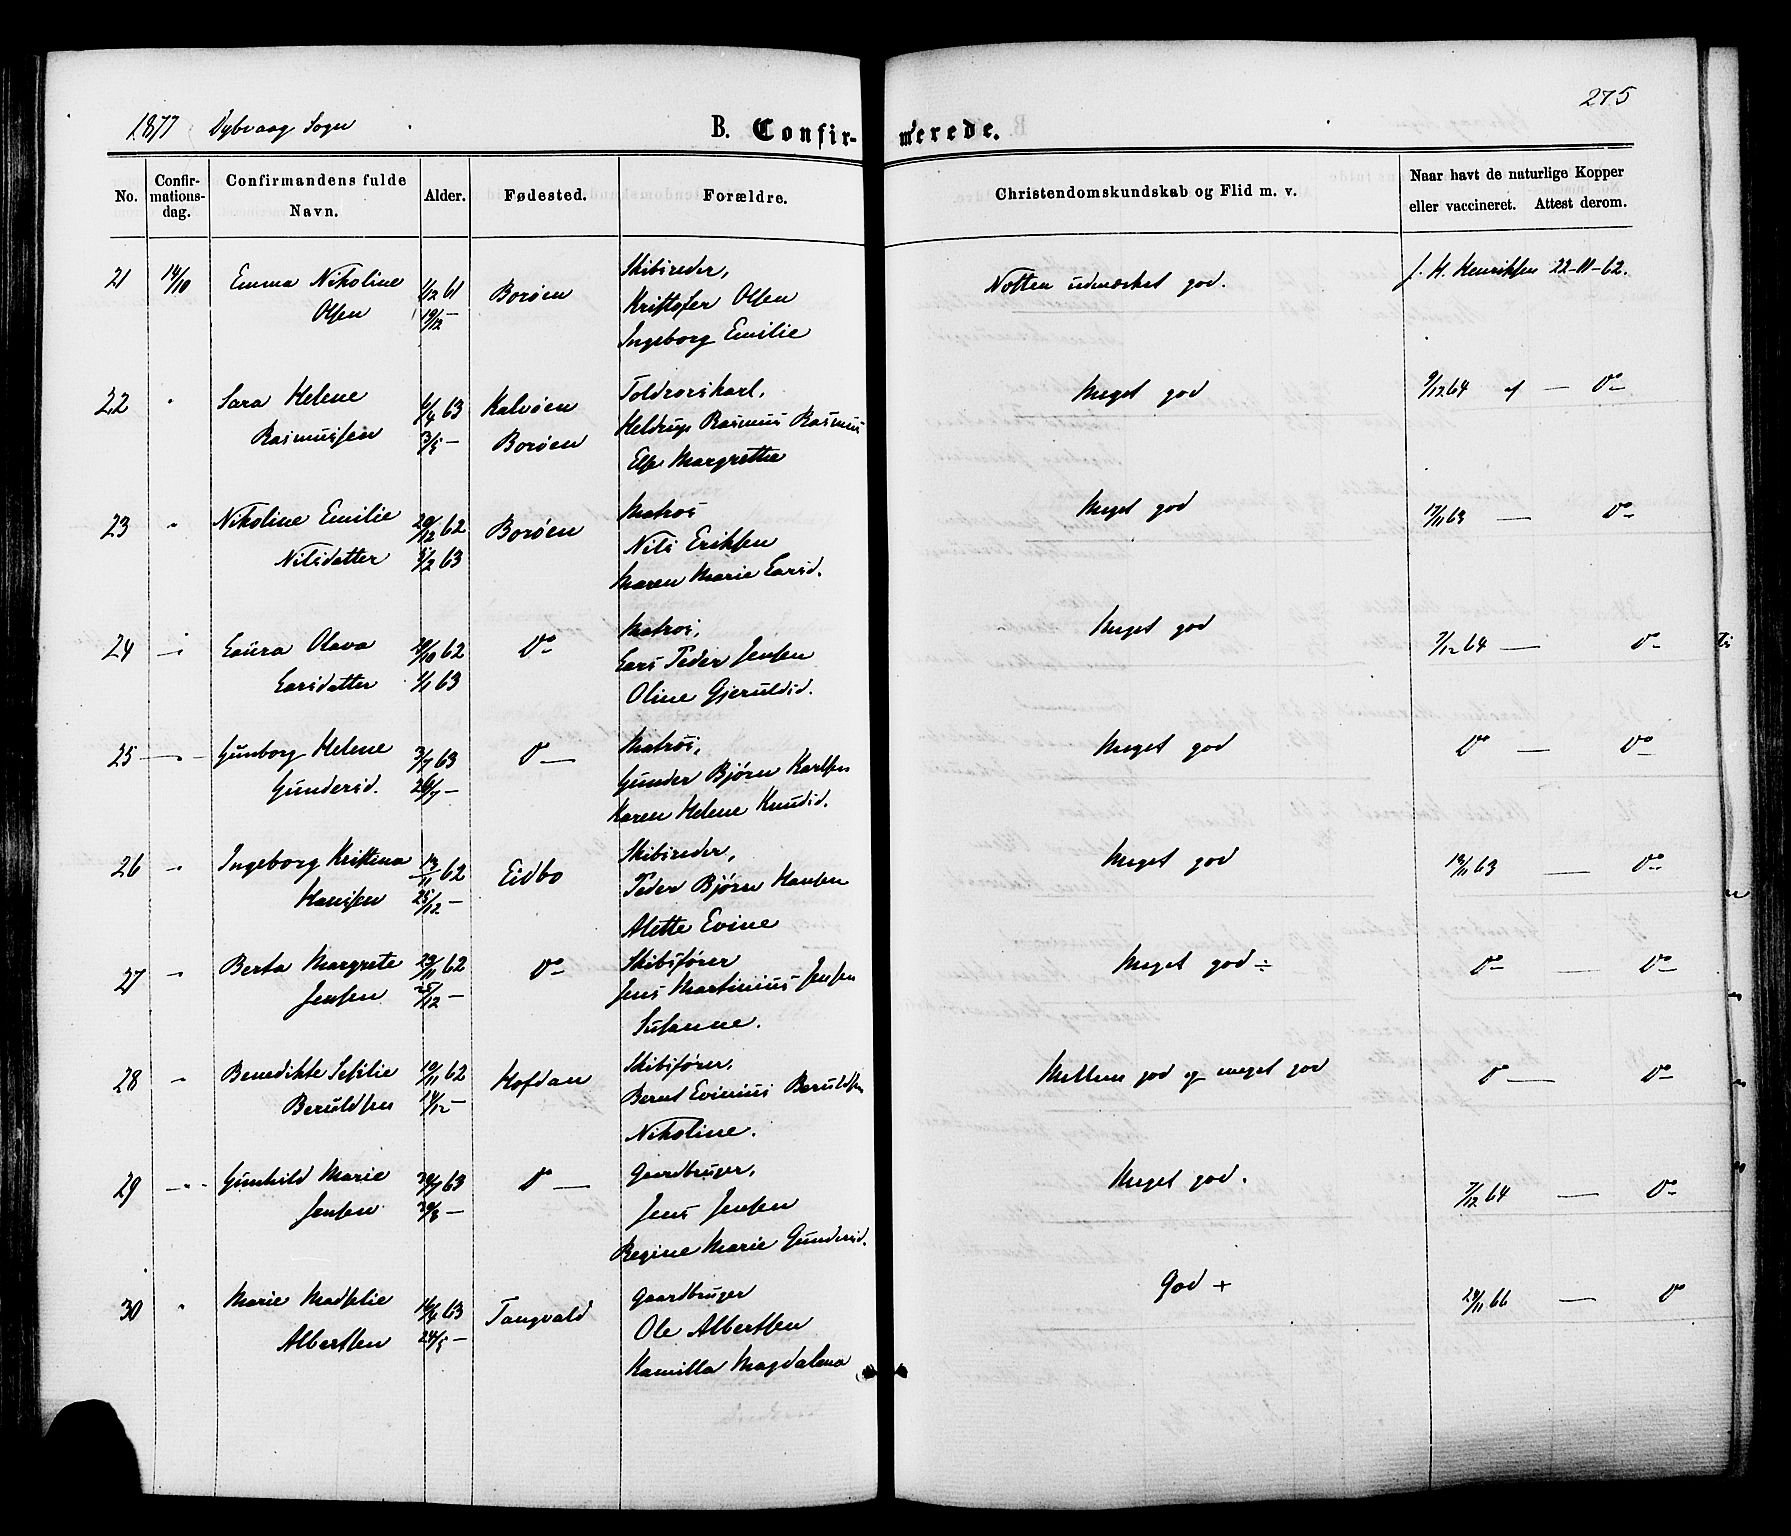 275
1877 Dybvaag Sogn
B. Confir- merede.
No. Confir-mations-dag. Confirmandens fulde Navn. Alder. Fødested. Forældre. Christendomskundskab og Flid m. v. Naar havt de naturlige Kopper eller vaccineret. Attest derom.
21 14/10 Emma Nikoline 1/12 61 Borøen Skibsreder, Notten udmærket god. J. H. Henriksen 22-11-62.
Olsen 19/12 — Kristofer Olsen
Ingeborg Emilie
22 " Sara Helene 6/4 63 Kalvøen Toldrorskarl, Meget god 9/12 64 af — Do
Rasmussen 3/5 — Borøen Heldrup Rasmus Rasmus
Else Margrethe
23 " Nikoline Emilie 20/12 62 Borøen Matros Meget god 17/11 63 — Do
Nilsdatter 8/2 63 Nils Eriksen
Maren Marie Larsd.
24 — " Laura Olava 20/10 62 Do Matros, Meget god 7/12 64 — Do
Larsdatter 1/1 63 Lars Peder Jensen
Oline Gjeruldsd.
25 — " — Gunborg Helene 3/7 63 Do — Matros, Meget god Do — Do
Gundersd. 26/7 — Gunder Bjørn Karlsen
Karen Helene Knudsd.
26 " Ingeborg Kristina 13/11 62 Eidbo Skibsreder, Meget god 19/11 63 — Do
Hansen 25/12 — Peder Bjørn Hansen
Alette Evine
27 " Berta Margrete 23/11 62 Do Skibsfører Meget god ÷ Do — Do
Jensen 25/12 — Jens Martinius Jensen
Susanne.
28 " Benedikte Sesilie 10/11 62 Hofdan Skibsfører, Mellem god og meget god Do — Do
Beruldsen 14/12 — Bernt Evinius Beruldsen
Nikoline.
29 — " Gunhild Marie 30/7 63 Do — Gaardbruger, Meget god. 7/12 64 — Do
Jensen 30/8 — Jens Jensen
Regine Marie Gundersd.
30 " Marie Madselie 16/4 63 Tangvald Gaardbruger God + 29/11 66 — Do
Albertsen 24/5 — Ole Albertsen
Kamilla Magdalena